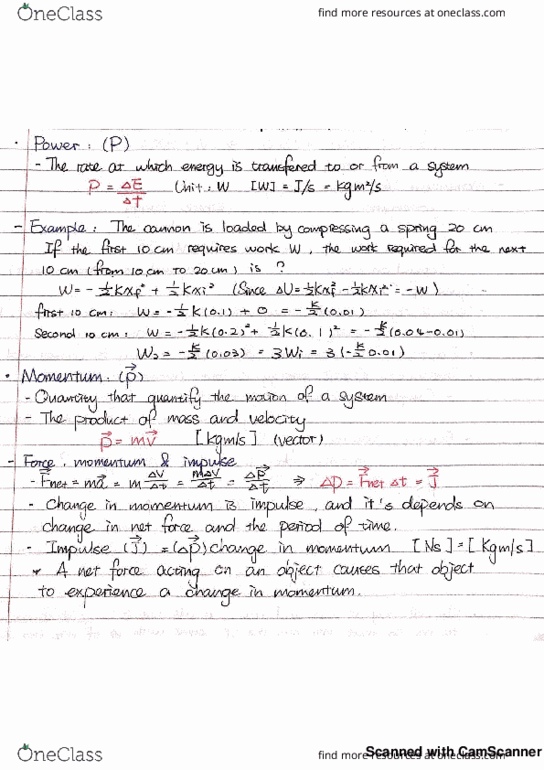 OneClass find more resources at oneclass.com
· Power : (P)
- The rate at which energy is transfered to or from a system
P = ΔE/Δt Unit : W [W] = J/s = kgm²/s
- Example : The cannon is loaded by compressing a spring 20 cm
If the first 10 cm requires work W, the work required for the next
10 cm (from 10 cm to 20 cm) is ?
W = - ½kxf² + ½kxi² (Since ΔU = ½kxf² - ½kxi² = -W)
first 10 cm : W = -½k(0.1) + 0 = -k/2 (0.01)
Second 10 cm : W = -½k(0.2)² + ½k(0.1)² = -k/2 (0.04-0.01)
W₂ = -k/2 (0.03) = 3Wi = 3(-k/2 0.01)
· Momentum : (p⃗)
- Quantity that quantify the motion of a system
- The product of mass and velocity
p⃗ = mv⃗ [kgm/s] (vector)
- Force, momentum & impulse
- F⃗net = ma⃗ = m Δv/Δt = mΔv/Δt = Δp⃗/Δt ⇒ Δp = F⃗net Δt = J⃗
- Change in momentum is impulse, and it's depends on
change in net force and the period of time.
- Impulse (J⃗) = (Δp⃗) change in momentum [Ns] = [kgm/s]
* A net force acting on an object causes that object
to experience a change in momentum.
OneClass find more resources at oneclass.com
Scanned with CamScanner